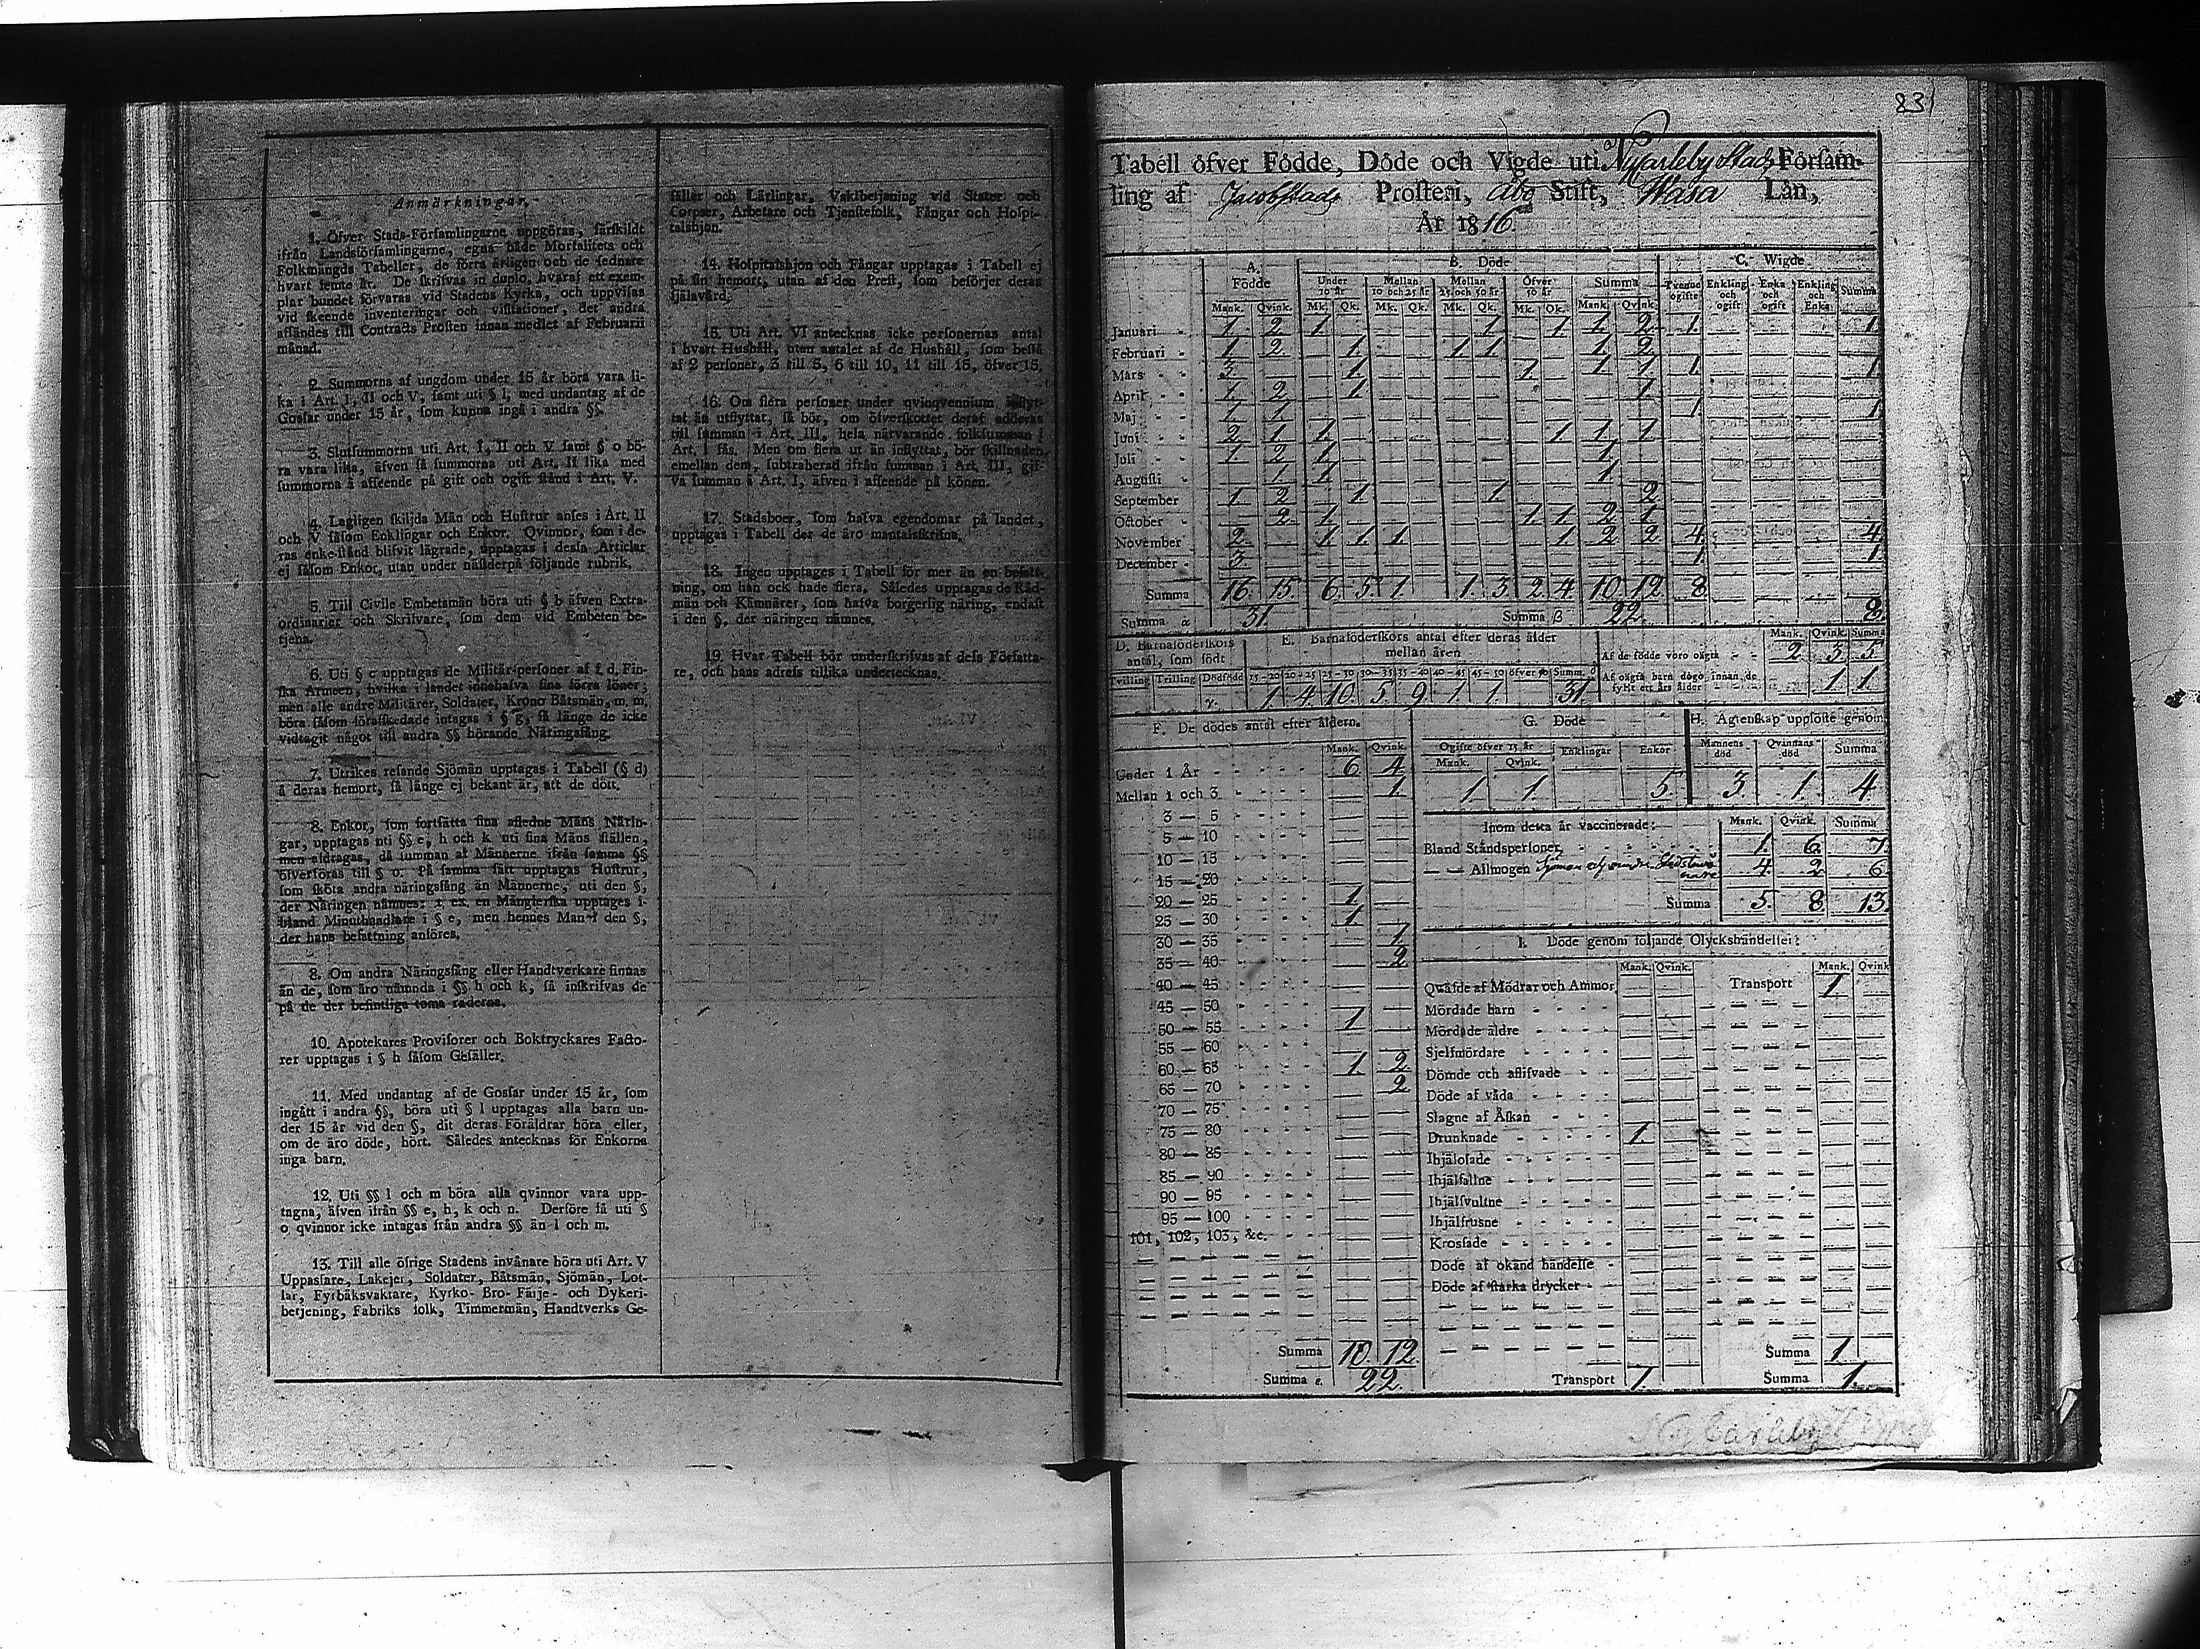 Anmärkningar.
1. Öfver Stads-Församlingarne uppgöras, särskildt
ifrån Landsförsamlingarne, egna både Mortalitets och
Folkmängds Tabeller, de förra årligen och de sednare
hvart femte år. De skrifvas in duplo, hvaraf ett exem-
plar bundet förvaras vid Stadens Kyrka, och uppvisas
vid skeende inventeringar och visitationer, det andra
affändes till Contracts Prosten innan medlet af Februarii
månad.
2. Summorna af ungdom under 15 år böra vara li-
ka i Art. I, II och V, samt uti § l, med undantag af de
Gossar under 15 år, som kunna ingå i andra §§.
3. Slutsummorna uti Art. I, II och V samt § o bö-
ra vara lika, äfven så summorna uti Art. II lika med
summorna å afseende på gift och ogift stånd i Art. V.
4. Lagligen skiljda Män och Hustrur anses i Art. II
och V såsom Enklingar och Enkor. Qvinnor, som i de-
ras enke-stånd blifvit lägrade, upptagas i dessa Articlar
ej såsom Enkor, utan under nästderpå följande rubrik.
5. Till Civile Embetsmän böra uti § b äfven Extra-
ordinarier och Skrifvare, som dem vid Embeten be-
tjena.
6. Uti § c upptagas de Militär-personer af f. d. Fin-
ska Armeen, hvilka i landet innehafva sina förra löner;
men alle andre Militärer, Soldater, Krono Båtsmän, m. m.
böra såsom förafskedade intagas i § g, så länge de icke
vidtagit något till andra §§ hörande Näringsfång.
7. Utrikes resande Sjömän upptagas i Tabell (§ d)
å deras hemort, så länge ej bekant är, att de dött.
8. Enkor, som fortsätta sina afledne Mäns Närin-
gar, upptagas uti §§ e, h och k uti sina Mäns ställen,
men afdragas, då summan af Männerne ifrån samma §§
öfverföras till § o. På samma sätt upptagas Hustrur,
som sköta andra näringsfång än Männerne, uti den §,
der Näringen nämnes: t. ex. en Månglerska upptages i-
bland Minuthandlare i § e, men hennes Man i den §,
der hans befattning anföres.
8. Om andra Näringsfång eller Handtverkare finnas
än de, som äro nämnda i §§ h och k, så inskrifvas de
på de der befintliga toma raderna.
10. Apotekares Provisorer och Boktryckares Facto-
rer upptagas i § h såsom Gesäller.
11. Med undantag af de Gossar under 15 år, som
ingått i andra §§, böra uti § l upptagas alla barn un-
der 15 år vid den §, dit deras Föräldrar höra eller,
om de äro döde, hört. Således antecknas för Enkorna
inga barn.
12. Uti §§ l och m böra alla qvinnor vara upp-
tagna, äfven ifrån §§ e, h, k och n. Derföre få uti §
o qvinnor icke intagas från andra §§ än l och m.
13. Till alle öfrige Stadens invånare höra uti Art. V
Uppassare, Lakejer, Soldater, Båtsmän, Sjömän, Lot-
sar, Fyrbåksvaktare, Kyrko- Bro- Färje- och Dykeri-
betjening, Fabriks folk, Timmermän, Handtverks Ge-
säller och Lärlingar, Vaktbetjening vid Stater och
Corpser, Arbetare och Tjenstefolk, Fångar och Hospi-
talshjon.
14. Hospitalshjon och Fångar upptagas i Tabell ej
på sin hemort, utan af den Prest, som besörjer deras
själavård.
15. Uti Art. VI antecknas icke personernas antal
i hvart Hushåll, utan antalet af de Hushåll, som bestå
af 2 personer, 3 till 5, 6 till 10, 11 till 15, öfver 15.
16. Om flera personer under qvinqvennium inflyt-
tat än utflyttat, så bör, om öfverskottet deraf adderas
till summan i Art. III, hela närvarande folksumman i
Art. I fås. Men om flera ut än inflyttat, bör skillnaden
emellan dem, subtraherad ifrån summan i Art. III, gif-
va summan i Art. I, äfven i afseende på könen.
17. Stadsboer, som hafva egendomar på landet,
upptagas i Tabell der de äro mantalsskrifna.
18. Ingen upptages i Tabell för mer än en befatt-
ning, om han ock hade flera. Således upptagas de Råd-
män och Kämnärer, som hafva borgerlig näring, endast
i den §, der näringen nämnes.
19. Hvar Tabell bör underskrifvas af dess Författa-
re, och hans adress tillika undertecknas.
83
Tabell öfver Födde, Döde och Vigde uti Nycarleby Stads Försam-
ling af Jacobstads Prosteri, Åbo Stift, Wasa Län,
År 1816
A. Födde B. Döde C. Wigde
Under 10 år Mellan 10 och 25 år Mellan 25 och 50 år Öfver 50 år Summa Tvenne ogifte Enkling och ogift Enka och ogift Enkling och Enka Summa
Mank. Qvink. Mk. Qk. Mk. Qk. Mk. Qk. Mk. Qk. Mank. Qvink.
Januari 1. 2. 1. 1. 1. 1. 2. 1. 1.
Februari 1. 2. 1. 1. 1. 1. 2.
Mars 3. 1. 1. 1. 1. 1. 1.
April 1. 2. 1. 1.
Maj 1. 1. 1. 1.
Juni 2. 1. 1. 1. 1. 1.
Juli 1. 2. 1. 1.
Augusti 1. 1. 1.
September 1. 2. 1. 1. 2.
October 2. 1. 1. 1. 2. 1.
November 2. 1. 1. 1. 1. 2. 2. 4. 4.
December 3. 1. 1.
Summa 16. 15. 6. 5. 1. 1. 3. 2. 4. 10. 12. 8.
Summa α 31. Summa β 22. 8.
D. Barnaföderskors antal, som födt
Tvilling Trilling Dödfödd
E. Barnaföderskors antal efter deras ålder mellan åren
15 — 20 20 — 25 25 — 30 30 — 35 35 — 40 40 — 45 45 — 50 öfver 50 Summ. δ
1. 4. 10. 5. 9. 1. 1. 31
Mank. Qvink. Summa
Af de födde voro oägta 2. 3. 5.
Af oägta barn dogo innan de fyllt ett års ålder 1. 1.
F. De dödes antal efter åldern.
Mank. Qvink.
Under 1 År 6. 4.
Mellan 1 och 3 1.
3 — 5
5 — 10
10 — 15
15 — 20
20 — 25 1.
25 — 30 1.
30 — 35 1.
35 — 40 2.
40 — 45
45 — 50
50 — 55 1.
55 — 60
60 — 65 1. 2.
65 — 70 2.
70 — 75
75 — 80
80 — 85
85 — 90
90 — 95
95 — 100
101, 102, 103, &c.
Summa 10. 12.
Summa ε. 22.
G. Döde
Ogifte öfver 15 år Enklingar Enkor
Mank. Qvink.
1. 1. 5.
H. Ägtenskap upplöste genom
Mannens död Qvinnans död Summa
3. 1. 4.
Inom detta år vaccinerade: Mank. Qvink. Summa
Bland Ståndspersoner 1. 6. 7.
— — Allmogen Sjömän och mindre 4. 2. 6.
Summa 5. 8. 13.
I. Döde genom följande Olyckshändelser:
Mank. Qvink. Mank. Qvink
Qväfde af Mödrar och Ammor Transport 1.
Mördade barn
Mördade äldre
Sjelfmördare
Dömde och aflifvade
Döde af våda
Slagne af Åskan
Drunknade 1.
Ihjälosade
Ihjälfallne
Ihjälsvultne
Ihjälfrusne
Krossade
Döde af okänd händelse
Döde af starka drycker
Summa 1.
Transport 1. Summa 1.